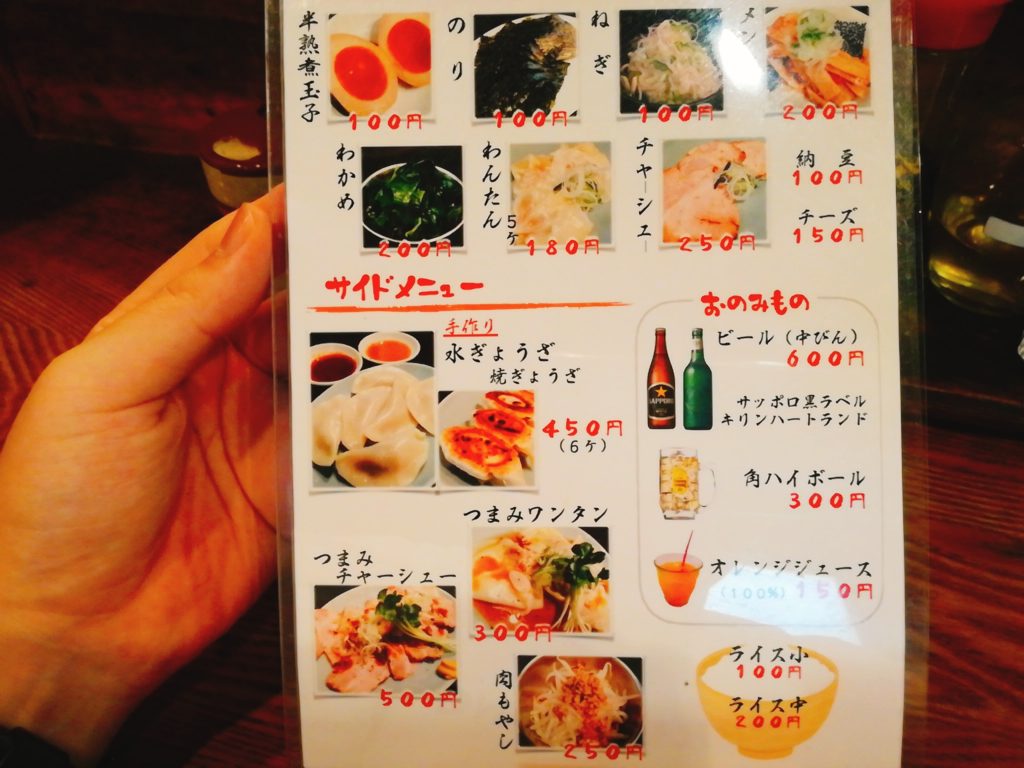 半熟煮玉子
100円
のり
100円
ねぎ
100円
メン
200円
わかめ
200円
わんたん
5ケ
180円
チャーシュー
250円
納豆
100円
チーズ
150円
サイドメニュー
手作り
水ぎょうざ
焼ぎょうざ
450円
(6ケ)
つまみワンタン
300円
つまみ
チャーシュー
500円
肉もやし
250円
おのみもの
ビール(中びん)
600円
SAPPORO
サッポロ黒ラベル
キリンハートランド
角ハイボール
300円
オレンジジュース
(100%) 150円
ライス小
100円
ライス中
200円